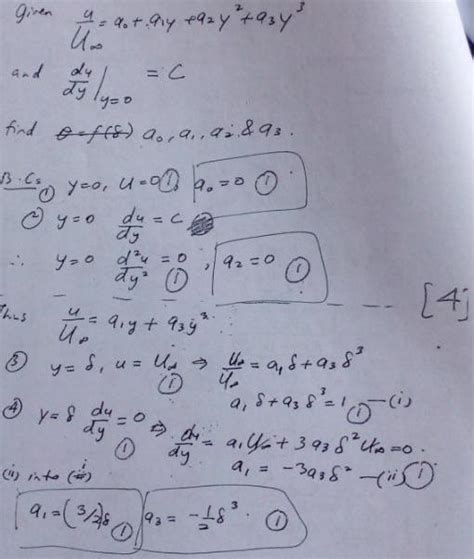 Given u/U∞ = a₀ + a₁y + a₂y² + a₃y³
and du/dy|y=0 = C
find a₀, a₁, a₂ & a₃.
B.Cs ① y=0, u=0 ①, a₀ = 0 ①
② y=0 du/dy = C
∴ y=0 d²u/dy² = 0 ①, a₂ = 0 ①
[4]
Thus u/U∞ = a₁y + a₃y³
③ y=δ, u=U∞ ① ⇒ U∞/U∞ = a₁δ + a₃δ³
a₁δ + a₃δ³ = 1 ① —(i)
④ y=δ du/dy = 0 ① ⇒ du/dy = a₁U∞ + 3a₃δ²U∞ = 0.
a₁ = -3a₃δ² —(ii) ①
(ii) into (i)
a₁ = (3/2)δ ① a₃ = -1/2 δ³ ①